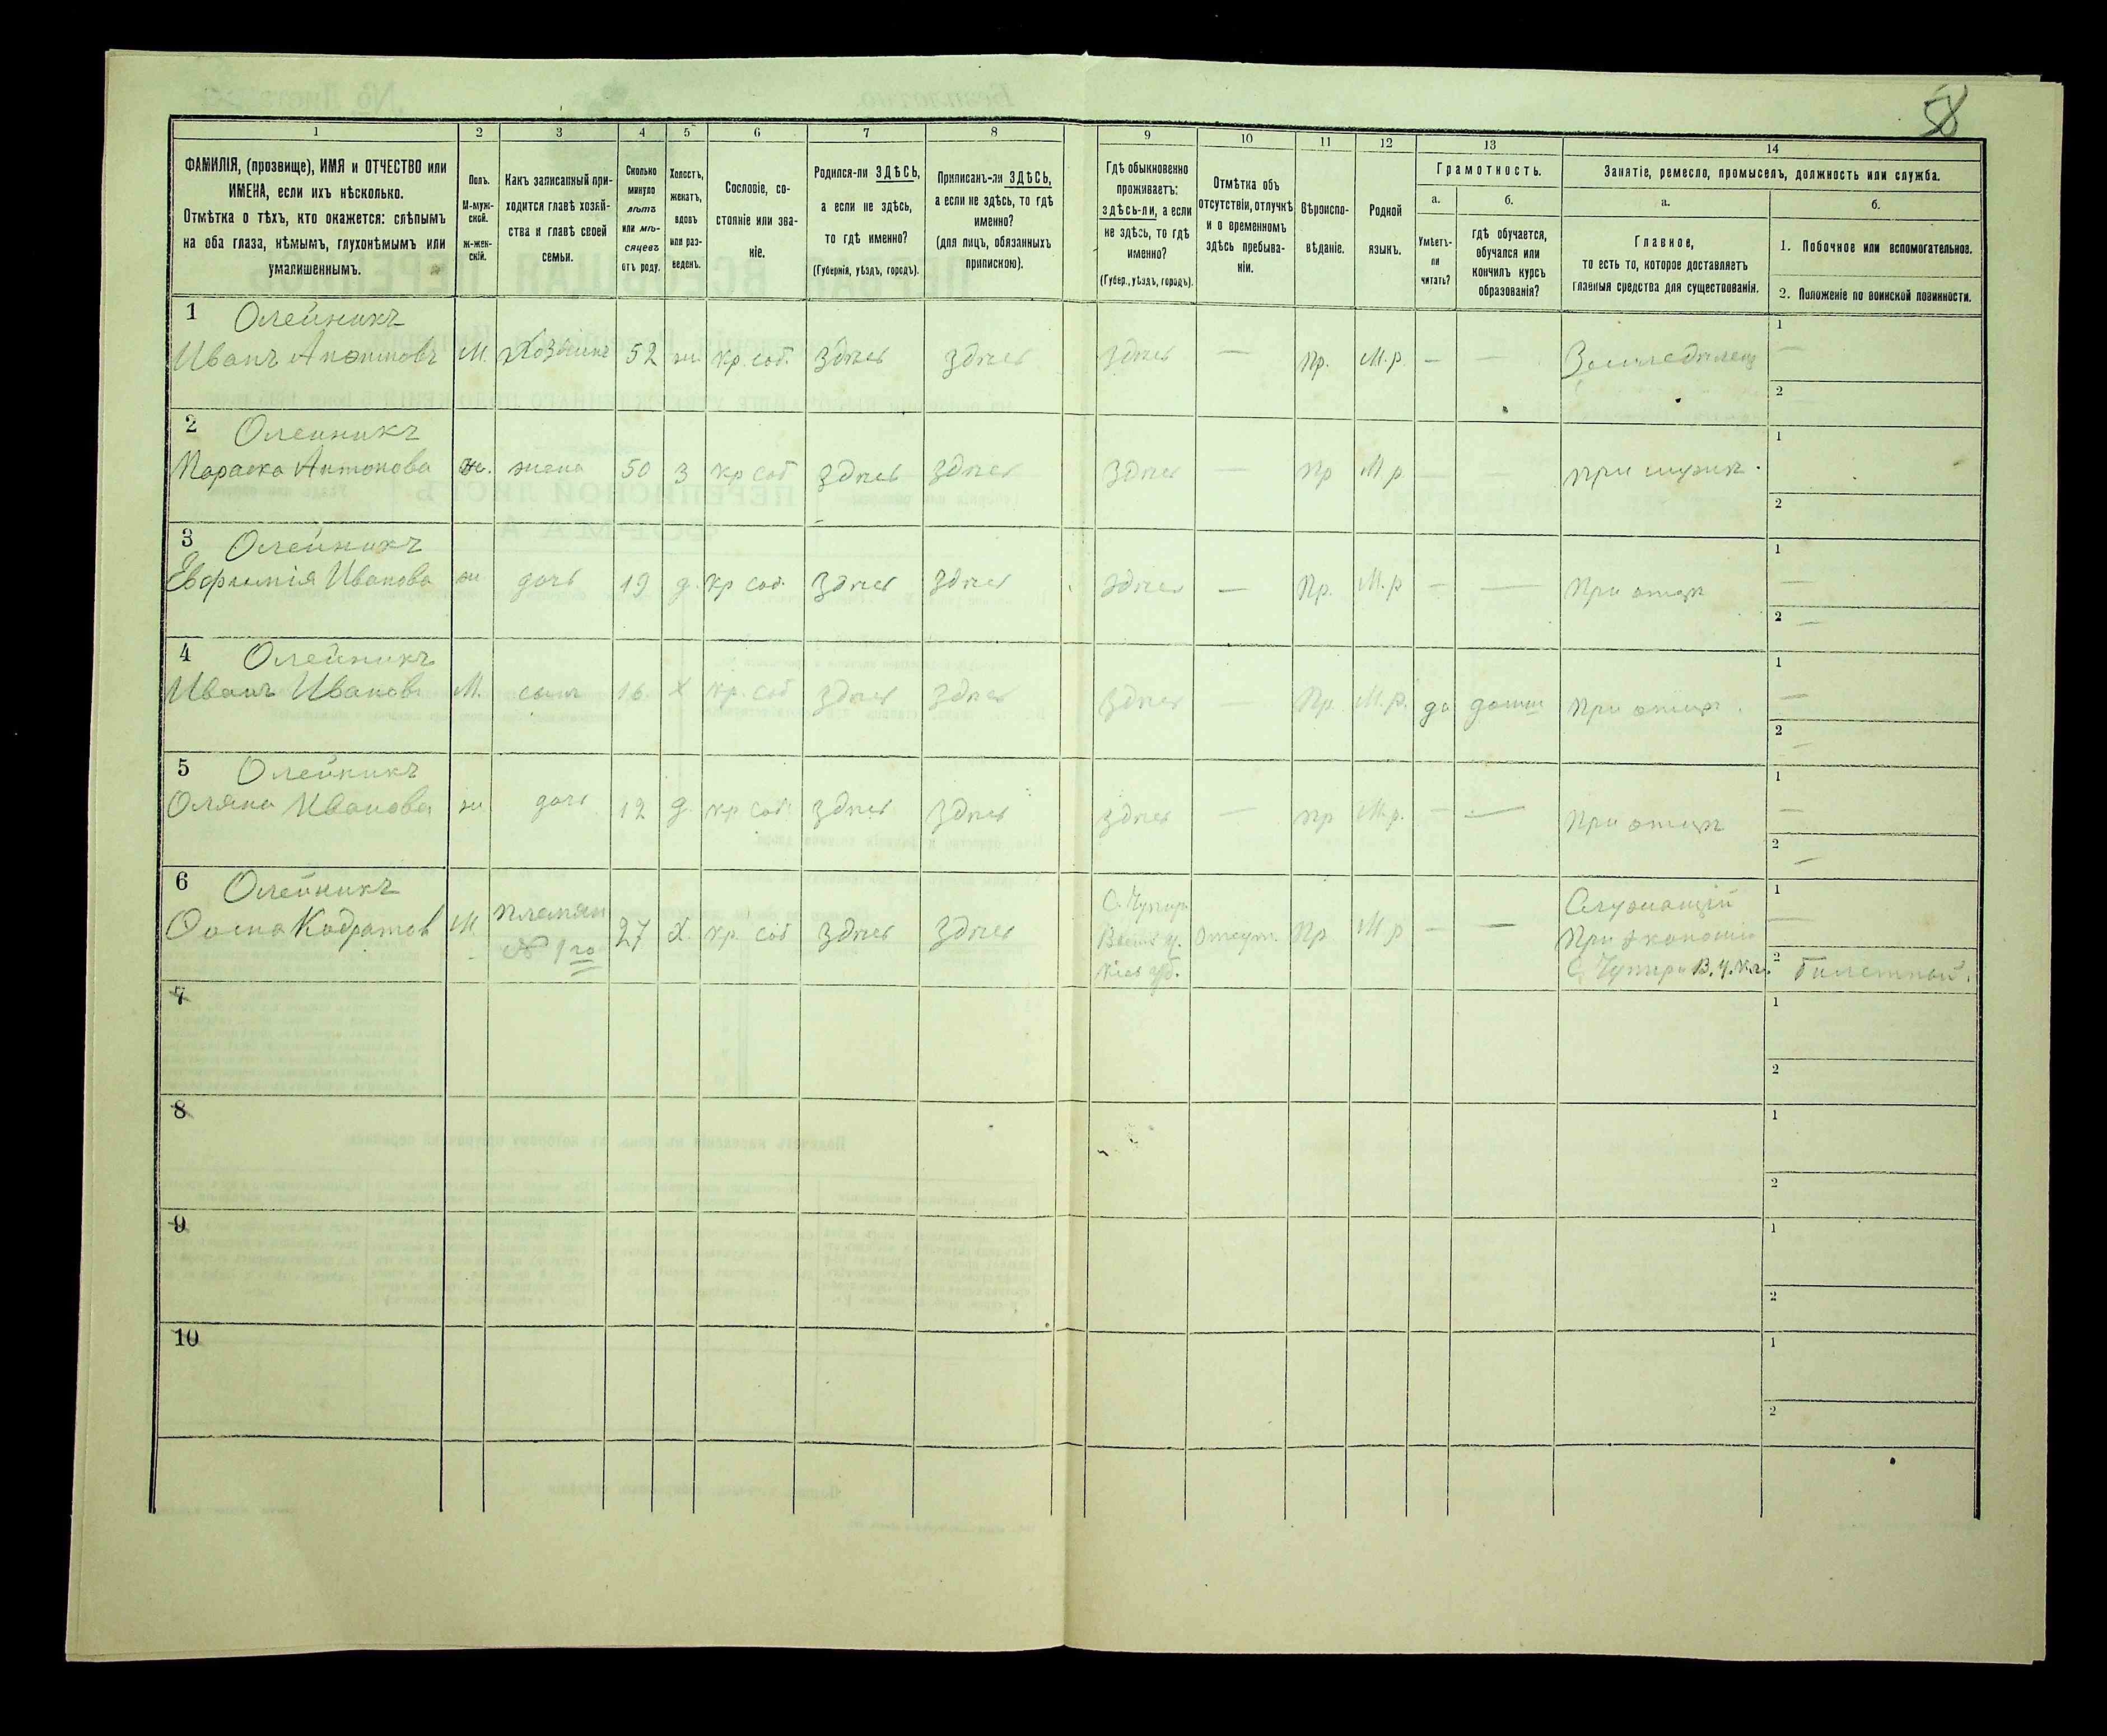 58
1 2 3 4 5 6 7 8 9 10 11 12 13 14
ФАМИЛІЯ, (прозвище), ИМЯ и ОТЧЕСТВО или
ИМЕНА, если ихъ нѣсколько.
Отмѣтка о тѣхъ, кто окажется: слѣпымъ
на оба глаза, нѣмымъ, глухонѣмымъ или
умалишеннымъ.
Полъ.
М-муж-
ской.
ж-жен-
скій.
Какъ записанный при-
ходится главѣ хозяй-
ства и главѣ своей
семьи.
Сколько
минуло
лѣтъ
или мѣ-
сяцевъ
отъ роду.
Холостъ,
женатъ,
вдовъ
или раз-
веденъ.
Сословіе, со-
стояніе или зва-
ніе.
Родился-ли ЗДѢСЬ,
а если не здѣсь,
то гдѣ именно?
(Губернія, уѣздъ, городъ).
Приписанъ-ли ЗДѢСЬ,
а если не здѣсь, то гдѣ
именно?
(для лицъ, обязанныхъ
припискою).
Гдѣ обыкновенно
проживаетъ:
здѣсь-ли, а если
не здѣсь, то гдѣ
именно?
(Губер., уѣздъ, городъ).
Отмѣтка объ
отсутствіи, отлучкѣ
и о временномъ
здѣсь пребыва-
ніи.
Вѣроиспо-
вѣданіе.
Родной
языкъ.
Грамотность.
а.
Умѣетъ-
ли
читать?
б.
гдѣ обучается,
обучался или
кончилъ курсъ
образованія?
Занятіе, ремесло, промыселъ, должность или служба.
а.
Главное,
то есть то, которое доставляетъ
главныя средства для существованія.
б.
1. Побочное или вспомогательное.
2. Положеніе по воинской повинности.
1 Олейникъ
Иванъ Антоновъ М. Хозяинъ 52 ж. кр. соб. здѣсь здѣсь здѣсь — Пр. М.р. — — Земледѣлец 1 —
2
2 Олейникъ
Параска Антонова ж. жена 50 з кр соб здѣсь здѣсь здѣсь — Пр М р. — — при мужѣ. 1
2
3 Олейникъ
Евфимія Иванова ж дочь 19 д. кр соб. здѣсь здѣсь здѣсь — Пр. М.р — — При отцѣ 1 —
2 —
4 Олейникъ
Иванъ Ивановъ М. сынъ 16. Х кр. соб здѣсь здѣсь здѣсь — Пр. М.р. да дома При отцѣ. 1 —
2 —
5 Олейникъ
Оляна Иванова ж. дочь 12 д. кр соб. здѣсь здѣсь здѣсь — Пр М.р. — — При отцѣ 1 —
2 —
6 Олейникъ
Кодратов М племян
№ 1го 27 Х. кр. соб здѣсь здѣсь
Кіев губ. Отсут. Пр М р — —
Служащій
При экономіи
1 —
2 Билетный.
7 1
2
8 1
2
9 1
2
10 1
2